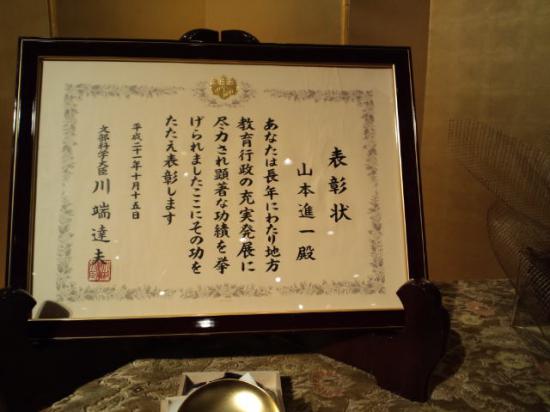 表彰状
山本進一殿
あなたは長年にわたり地方
教育行政の充実発展に
尽力され顕著な功績を挙
げられましたここにその功を
たたえ表彰します
平成二十一年十月十五日
文部科学大臣 川端達夫